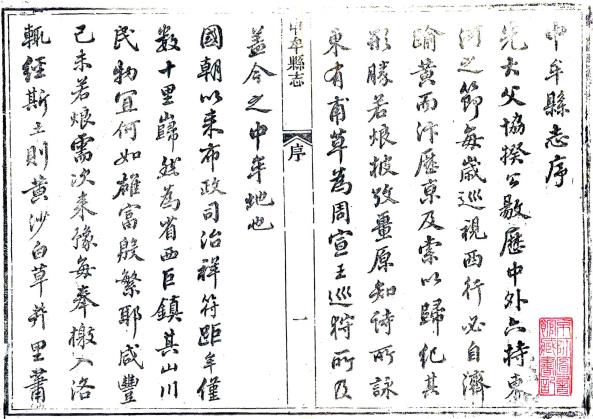 中牟縣志序
先大父協揆公敭歷中外六持東
河之節每歲巡視西行必自濟
踰黃而汴歷京及索以歸紀其
形勝若烺披攷知詩所詠
東有甫草為周宣王巡狩所及
蓋今之中牟地也
中牟縣志
序
一
國朝以來布政司治祥符距牟僅
數十里巋然為省西巨鎮其山川
民物宜何如雄富殷繁耶咸豐
己未若烺需次來豫每奉檄入洛
輒經斯土則黃沙白草里蕭